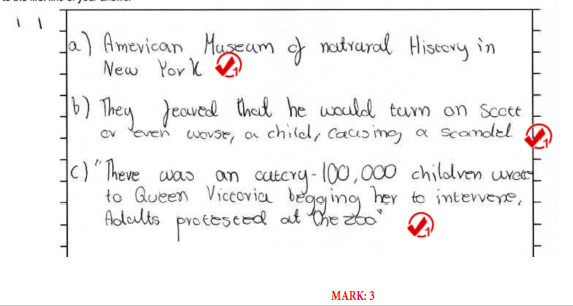 1 1
a) American Museum of natraral History in
New York
b) They feared that he would turn on Scott
or even worse, a child, causing a scandel
c) "There was an outcry - 100,000 children wrote
to Queen Victoria begging her to intervene,
Adults protested at the zoo"
MARK: 3